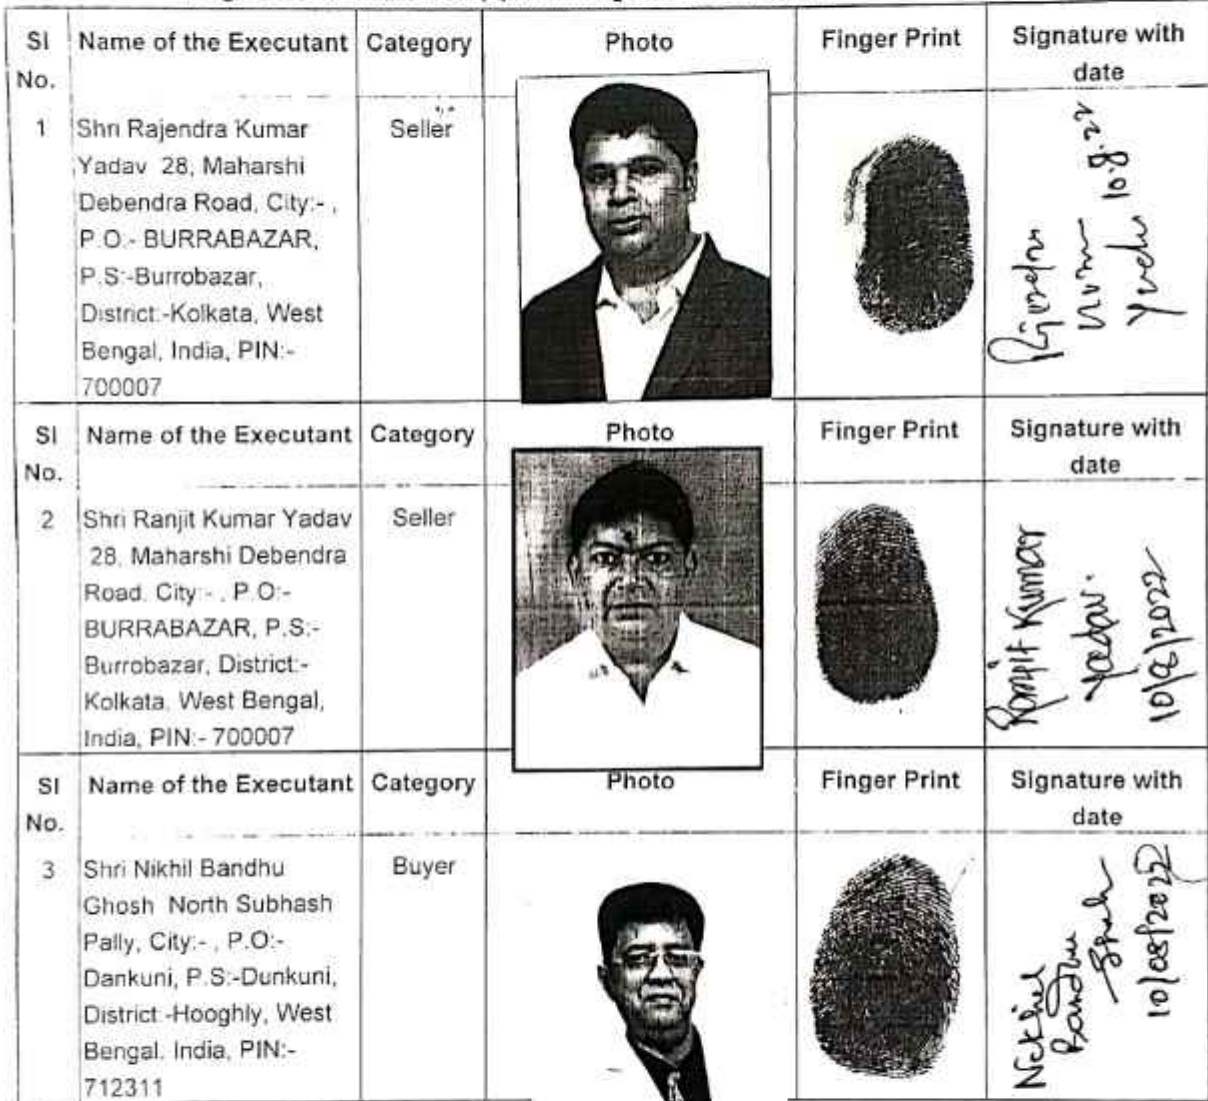 Sl No. Name of the Executant Category Photo Finger Print Signature with date
1 Shri Rajendra Kumar Seller
Yadav 28, Maharshi
Debendra Road, City:- ,
P.O:- BURRABAZAR,
P.S:-Burrobazar,
District:-Kolkata, West
Bengal, India, PIN:-
700007
Kumar
10.8.22
Sl No. Name of the Executant Category Photo Finger Print Signature with date
2 Shri Ranjit Kumar Yadav Seller
28, Maharshi Debendra
Road, City:- , P.O:-
BURRABAZAR, P.S:-
Burrobazar, District:-
Kolkata, West Bengal,
India, PIN:- 700007
Ranjit Kumar
Yadav.
10/8/2022
Sl No. Name of the Executant Category Photo Finger Print Signature with date
3 Shri Nikhil Bandhu Buyer
Ghosh North Subhash
Pally, City:- , P.O:-
Dankuni, P.S:-Dunkuni,
District:-Hooghly, West
Bengal, India, PIN:-
712311
Nikhil
Bandhu
Ghosh
10/08/2022